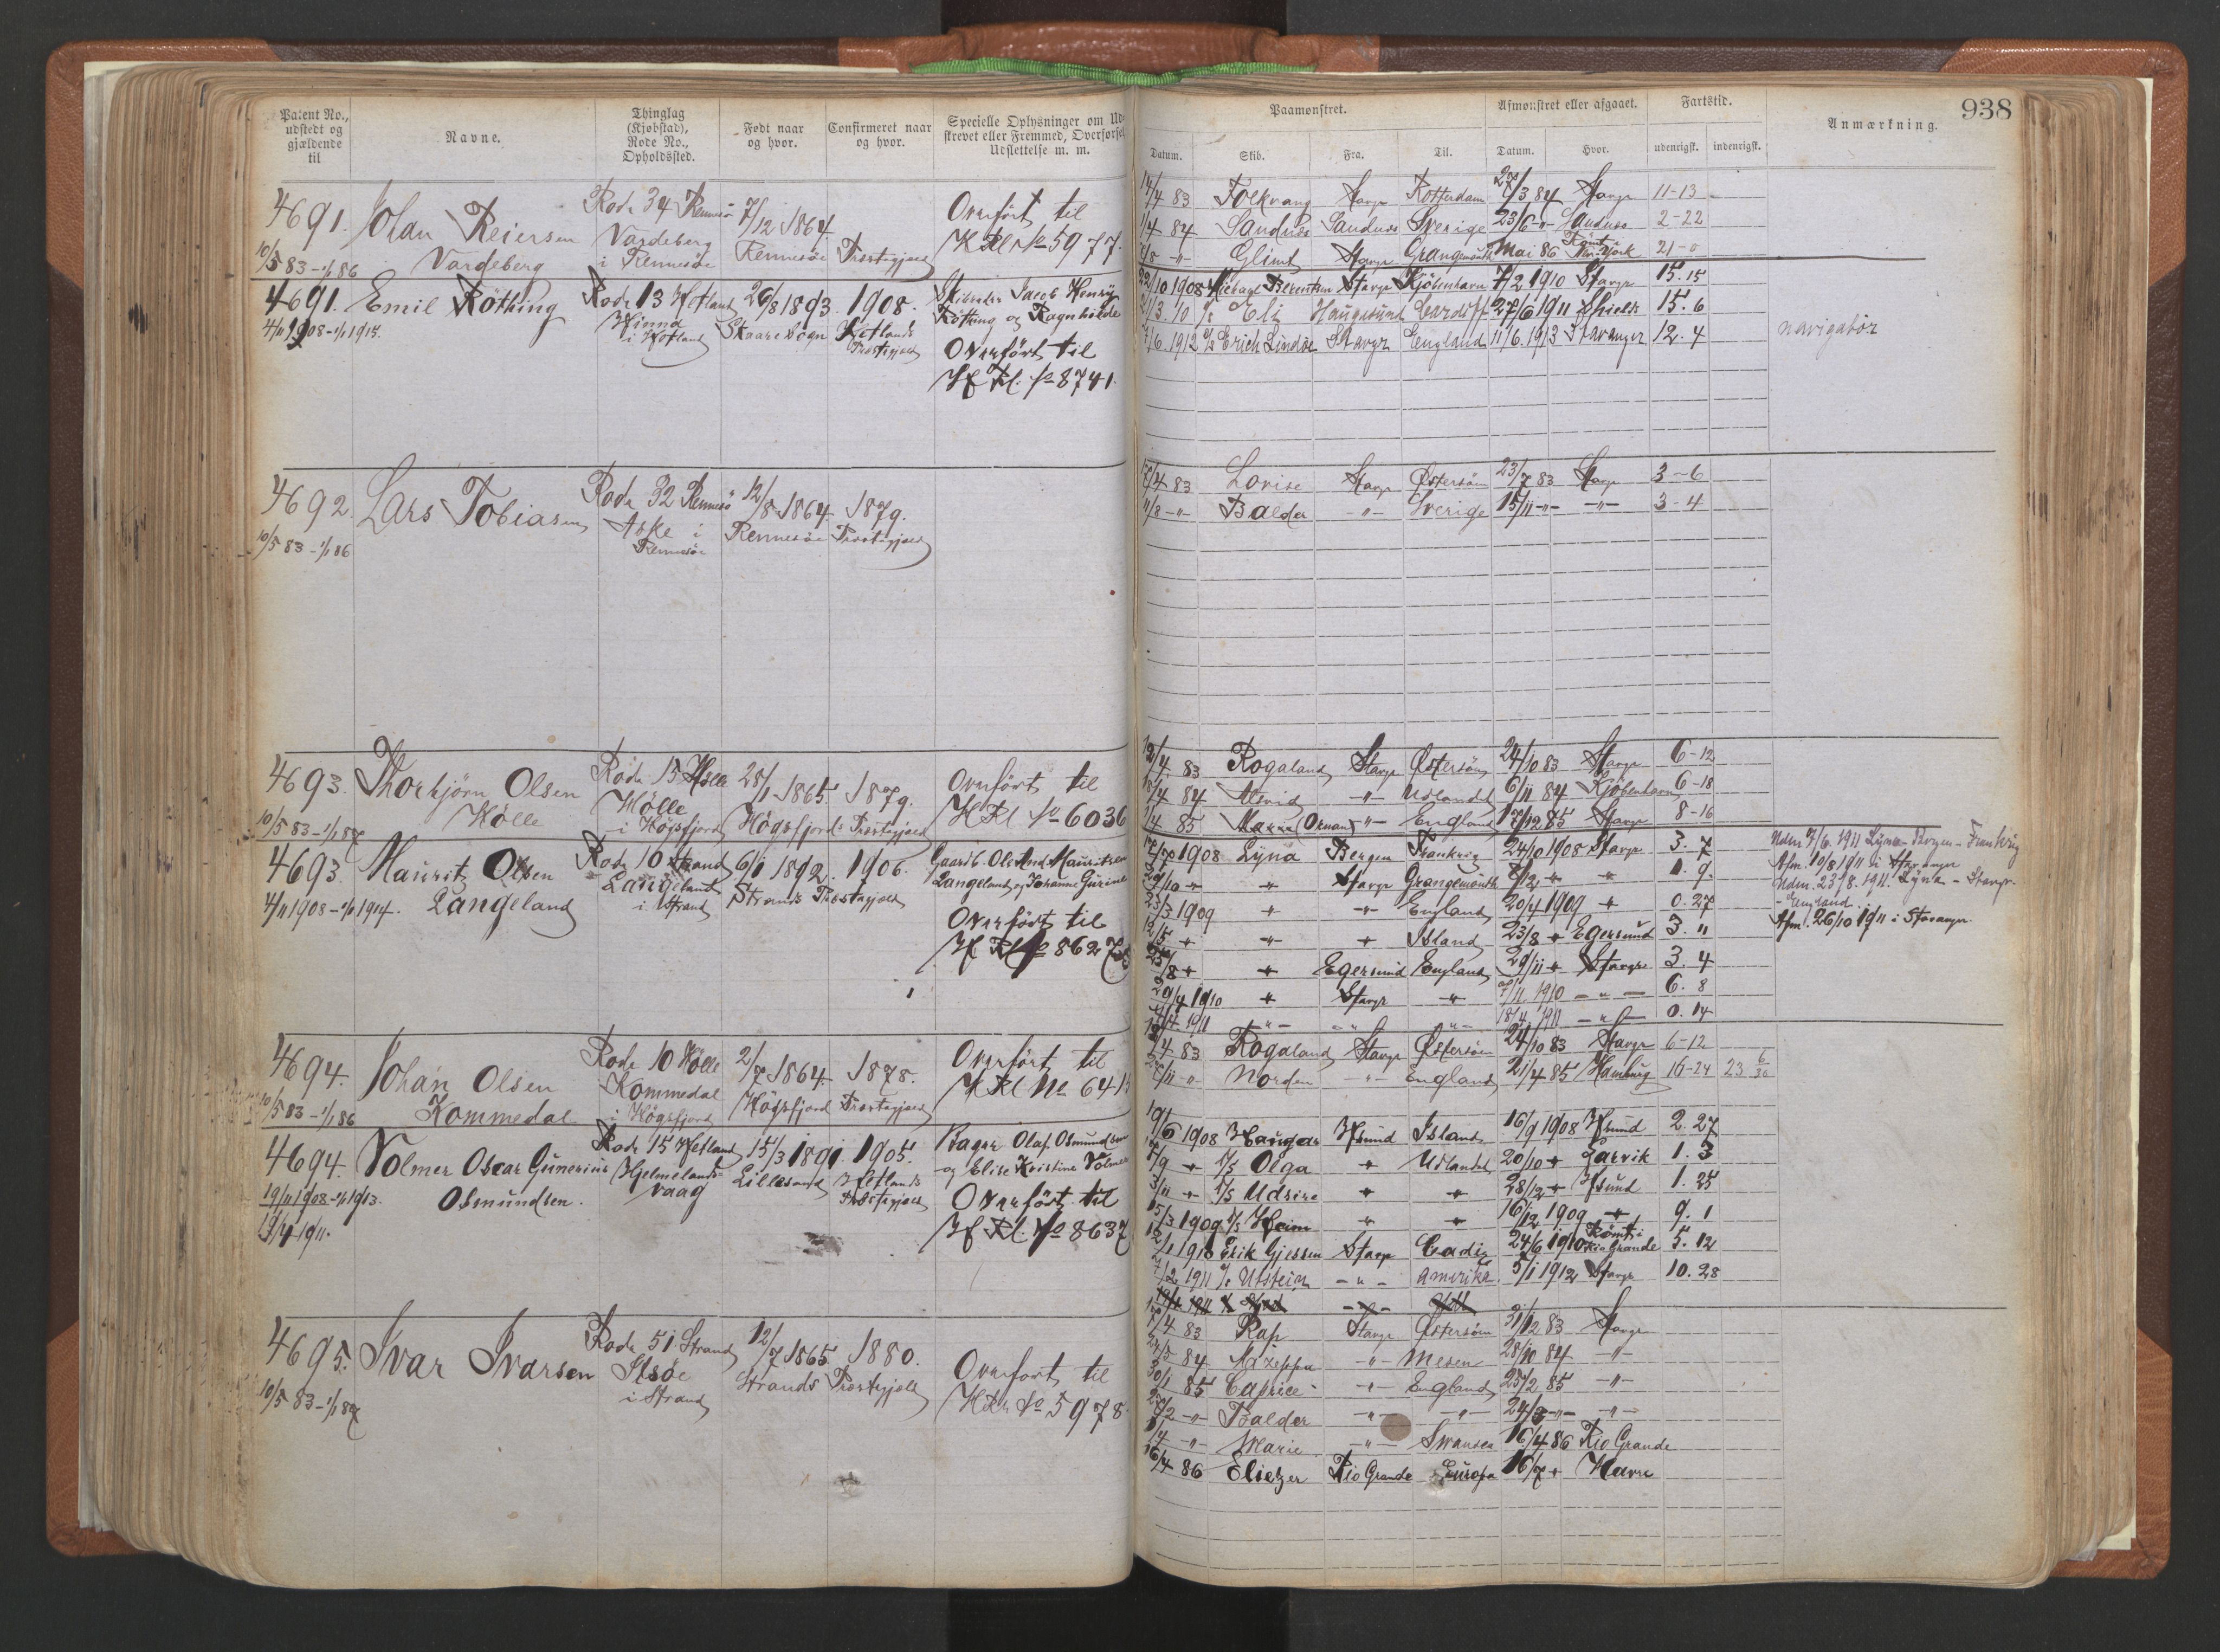 Patent No., udstedt og gjældende til
Navne.
Thinglag (Kjøbstad), Rode No., Opholdssted.
Født naar og hvor.
Confirmeret naar og hvor.
Specielle Oplysninger om Ud-
skrevet eller Fremmed, Overførsel
Udslettelse m. m.
Paamønstret.
Afmønstret eller afgaaet.
Fartstid.
Anmærkning.
938
Datum. Skib. Fra. Til. Datum. Hvor. udenrigsk. indenrigsk.
4691. Olau Reiersen Rode 34 Rennesö 7/12 1864 Overfört til
Vardeberg Vardeberg i Rennesöe Rennesöe Præstegjæld H Rl No 5977.
10/5 83 - 1/1 86
14/4 83 Folkvang Stavgr Rotterdam 27/3 84 Stavgr 11-13
1/4 84 Sandnes Sandnes Sverige 23/6 -"- Sandnes 2-22
Glimt Stavgr Grangemouth Mai 86 Römt i New-York 21-0
4691. Emil Röthing Rode 13 Hetland 26/8 1893. 1908. Skibsfører Jacob Henry
4/11 1908 - 1/1 1915. Hinna i Hetland Skaare Sogn Hetlands Præstegjæld Rötting og Ragnhilde
Overfört til
Hf Rl. No 8741.
22/10 1908 Michael Berentsen Stavgr Kjöbenhavn 7/2 1910 Stavgr 15.15
Eli Haugesund Cardiff 27/6 1911 Shields 15.6
Erich Lindöe Stavgr England 11/6.1913 Stavanger 12.4
navigatör
4692. Lars Tobiasen Rode 32 Rennesö 12/8 1864 1879.
10/5 83 - 1/1 86 Aske i Rennesöe Rennesöe Præstegjæld
17/4 83 Lovise Stavgr Östersöen 23/7 83 Stavgr 3-6
11/8 -"- Balder -"- Sverige 15/11 -"- -"- 3-4
4693. Thorbjörn Olsen Rode 15 Hölle 28/1 1865. 1879. Overfört til
10/5 83 - 1/1 87 Hölle Hölle i Högsfjord Högsfjords Præstegjæld H Rl No 6036
12/4 83 Rogaland Stavgr Östersöen 24/10 83 Stavgr 6-12
84 -"- Udlandet 6/11 84 Kjöbenhavn 6-18
1/4 85 -"- England 17/12 85 Stavgr 8-16
4693. Mauritz Olsen Rode 10 Strand 6/1 1892. 1906. Gaardb. Ole And. Mauritzen
4/11 1908 - 1/1 1914. Langeland Langeland i Strand Strands Præstegjæld Langeland og Johanne Gurine
Overfört til
Hf Rl No 8627
1908 Lyna Bergen Frankrig 24/10 1908 Stavgr 3.7
" Stavgr Grangemouth " " 1.9.
23/3 1909 " " England 20/4 1909 " 0.27
12/5 " " " Island 23/8 " Egersund 3."
" Egersund England 29/11 " Stavgr 3.4
29/4 1910 " Stavgr " 7/11 1910 -"- 6.8
1911 -"- -"- -"- 18/4 1911 -"- 0.14
Ndm 7/6. 1911 Lyna - Bergen - Frankrig
Afm. 10/8 1911 i Stavanger
Ndm. 23/8. 1911. Lyna - Stavgr.
- England.
Afm. 26/10 1911 i Stavanger.
4694. Johan Olsen Rode 10 Hölle 2/7 1864. 1878. Overfört til
10/5 83 - 1/1 86 Kommedal Kommedal i Högsfjord Högsfjord Præstegjæld H Rl No
12/4 83 Rogaland Stavgr Östersöen 24/10 83 Stavgr 6-12
Norden -"- England 21/4 85 Hamburg 16-24 23 6/30
4694. Volmer Oscar Gunerius Rode 15 Hetland 15/3 1891. 1905. Bager Olaf Osmundsen
19/11 1908 - 1/1 1913. Osmundsen. Hjelmelandsvaag Lillesand Hetlands Præstegjæld og Elise Kristine Volmer
19/4 1911.
Overfört til
Hf Rl. No 8637
19/6 1908 Haugar Hsund Island 16/9 1908 Hsund 2.27
" Olga " Udlandet 20/10 " Larvik 1.3
3/11 " Udsire " " 28/12 " Hsund 1.25
15/3 1909 Heim " " 16/12 1909 " 9.1
1910 Erik Gjessen Stavgr Cadiz 24/6 1910 Römt i Rio Grande 5.12
1911 Utstein -"- Amerika 5/1 1912 Stavgr 10.28
4695. Ivar Ivarsen Rode 51 Strand 12/7 1865 1880. Overfört til
10/5 83 - 1/1 87 Idsöe i Strand Strands Præstegjæld H Rl No 5978.
83 Rap Stavgr Östersöen 31/12 83 Stavgr
84 Mazeppa -"- Mesen 28/10 84 -"-
30/1 85 Caprice -"- England 25/2 85 -"-
-"- Balder -"- -"- -"- -"-
-"- Marie -"- Swansea 16/4 86 Rio Grande
16/4 86 Eliezer Rio Grande Europa 16/7 " Havre